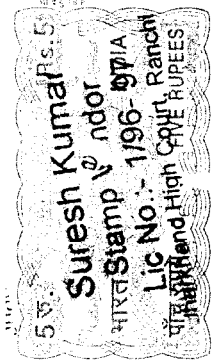 5 रु. Rs. 5
Suresh Kumar
भारत Stamp Vendor INDIA
Lic No.:- 1/96-97
Jharkhand High Court, Ranchi
पाँच रुपये FIVE RUPEES